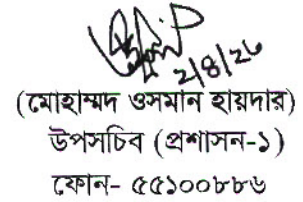 ২/৪/২৬
(মোহাম্মদ ওসমান হায়দার)
উপসচিব (প্রশাসন-১)
ফোন- ৫৫১০০৮৮৬